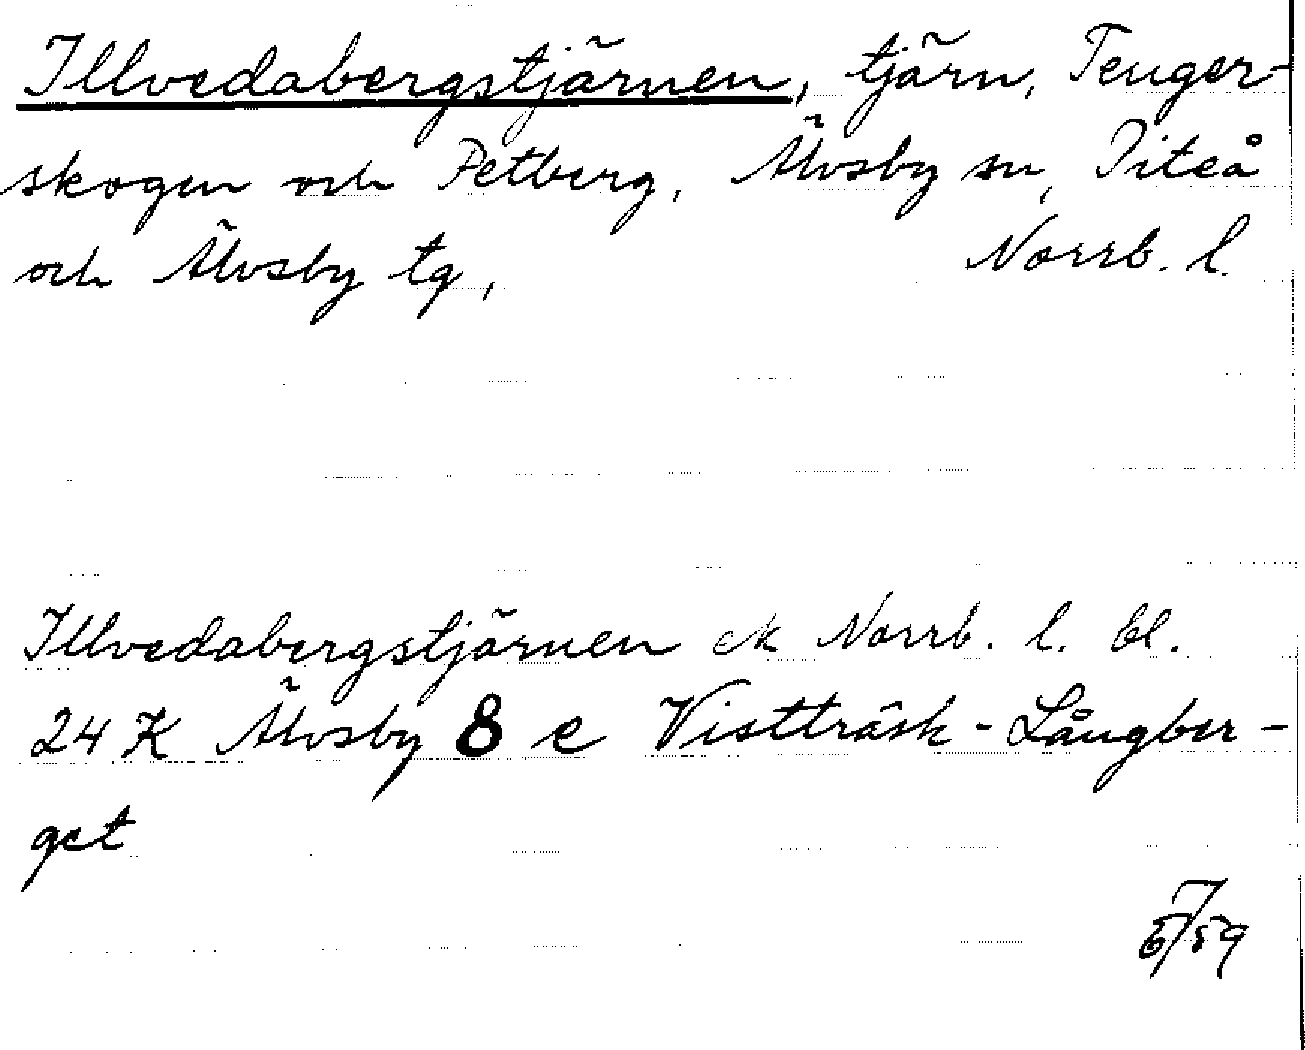 Illvedabergstjärnen, tjärn, Teuger-
skogen och Petberg, Älvsby sn, Piteå
och Älvsby tg, Norrb. l.
Illvedabergstjärnen ek Norrb. l. bl.
24 K Älvsby 8 e Vistträsk - Långber-
get